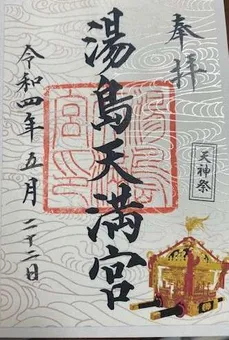 奉拝
天神祭
湯島天満宮
令和四年五月二十二日